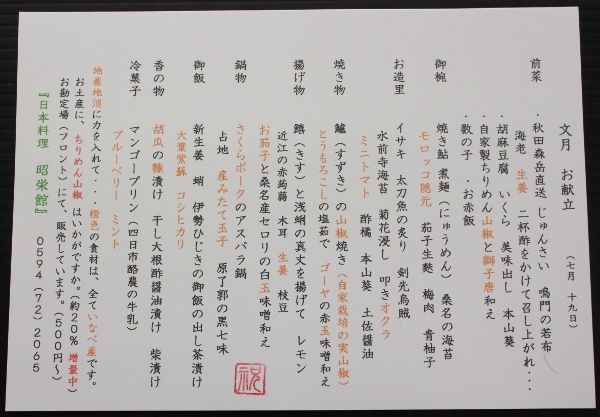 文月 お献立 (七月 十九日)
前菜 ・秋田森岳直送 じゅんさい 鳴門の若布
海老 生姜 二杯酢をかけて召し上がれ・・・
・胡麻豆腐 いくら 美味出し 本山葵
・自家製ちりめん山椒と獅子唐和え
・数の子 ・お赤飯
御椀 焼き鮎 煮麺(にゅうめん) 桑名の海苔
モロッコ隠元 茄子生麩 梅肉 青柚子
お造里 イサキ 太刀魚の炙り 剣先烏賊
水前寺海苔 菊花浸し 叩きオクラ
ミニトマト 酢橘 本山葵 土佐醤油
焼き物 鱸(すずき)の山椒焼き(自家栽培の実山椒)
とうもろこしの塩茹で ゴーヤの赤玉味噌和え
揚げ物 鱚(きす)と浅蜊の真丈を揚げて レモン
近江の赤蒟蒻 木耳 生姜 枝豆
お茄子と桑名産セロリの白玉味噌和え
鍋物 さくらポークのアスパラ鍋
占地 産みたて玉子 原了郭の黒七味
御飯 新生姜 蛸 伊勢ひじきの御飯の出し茶漬け
大葉紫蘇 コシヒカリ
香の物 胡瓜の糠漬け 干し大根酢醤油漬け 柴漬け
冷菓子 マンゴープリン(四日市酪農の牛乳)
ブルーベリー ミント
地産地消に力を入れて・・・橙色の食材は、全ていなべ産です。
お土産に、ちりめん山椒 はいかがですか。(約20% 増量中)
お勘定場(フロント)にて、販売しています。(500円〜)
『日本料理 昭栄館』 0594(72)2065
祝